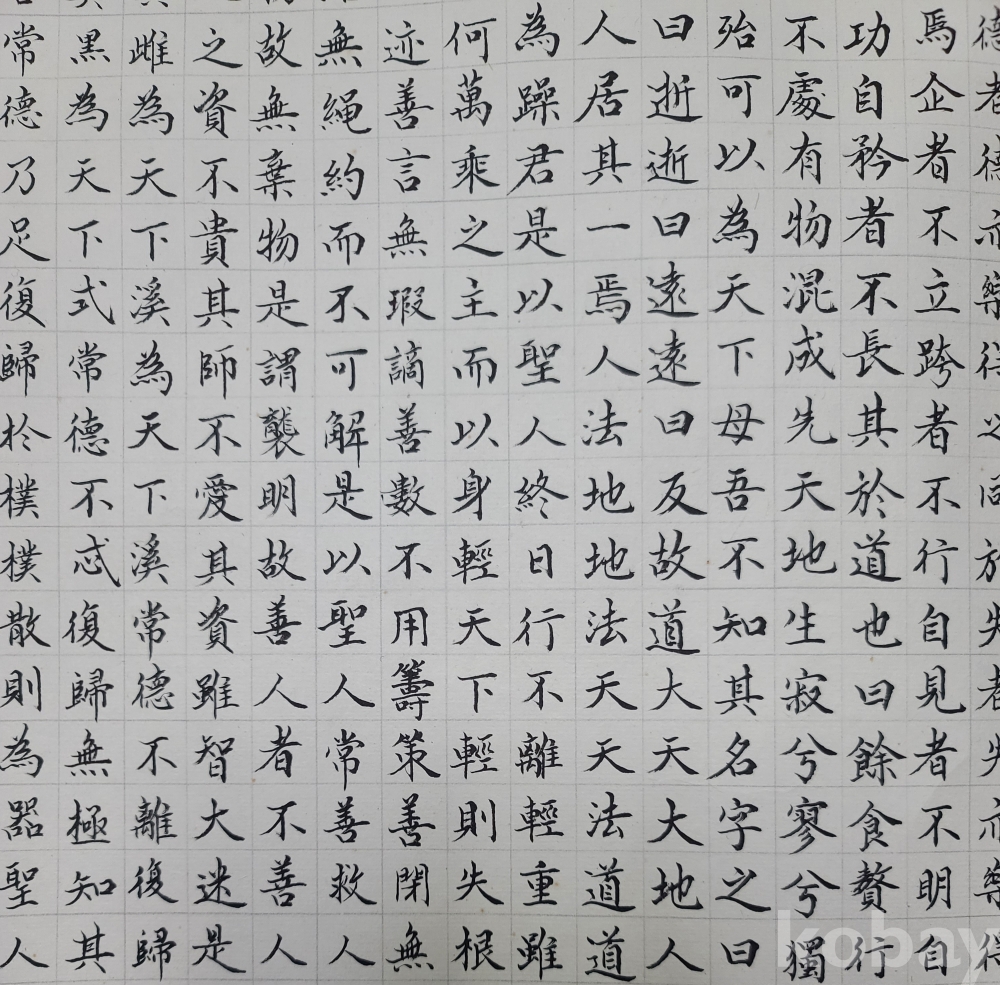 德者德亦樂得之同於失者失亦樂得
焉企者不立跨者不行自見者不明自
功自矜者不長其於道也曰餘食贅行
不處有物混成先天地生寂兮寥兮獨
殆可以為天下母吾不知其名字之曰
曰逝逝曰遠遠曰反故道大天大地人
人居其一焉人法地地法天天法道道
為躁君是以聖人終日行不離輕重雖
何萬乘之主而以身輕天下輕則失根
迹善言無瑕謫善數不用籌策善閉無
無繩約而不可解是以聖人常善救人
故無棄物是謂襲明故善人者不善人
之資不貴其師不愛其資雖智大迷是
雌為天下溪為天下溪常德不離復歸
黑為天下式常德不忒復歸無極知其
常德乃足復歸於樸樸散則為器聖人
kobay